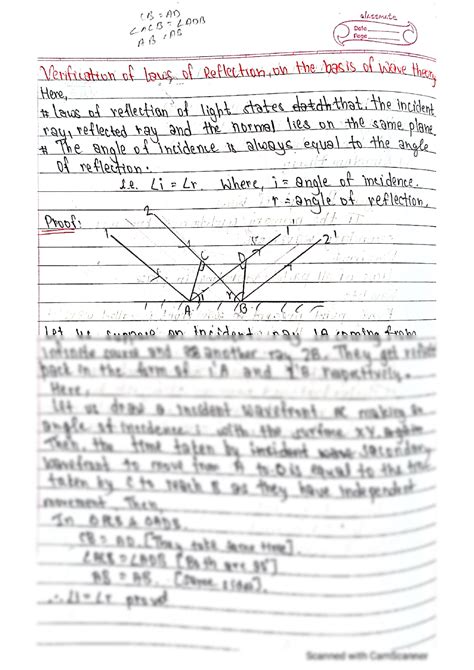 CB = AD
∠ACB = ∠ADB
AB = AB
classmate
Date
Page
Verification of laws of Reflection, on the basis of wave theory
Here,
# Laws of reflection of light states that, the incident
ray, reflected ray and the normal lies on the same plane
# The angle of incidence is always equal to the angle
of reflection.
i.e. ∠i = ∠r. Where, i = angle of incidence.
r = angle of reflection.
Proof:
2
1 C D 1' 2'
i r
A B
Let us suppose an incident ray 1A coming from
infinite source and another ray 2B. They get reflect
back in the form of 1'A and 2'B respectively.
Here,
Let us draw a incident wavefront making an
angle of incidence i with the surface XY
Then, the time taken by incident wave secondary
wavefront to move from A to D is equal to the time
taken by C to reach B as they have independent
movement. Then,
In
CB = AD. [They take same time].
∠ACB = ∠ADB [Both are 90°]
AB = AB. [
∴ ∠i = ∠r proved
Scanned with CamScanner